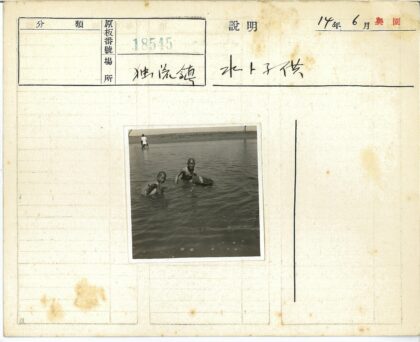 分類
原板番號 18545
場所 独流鎮
説明 14年6月奥園
水ト子供